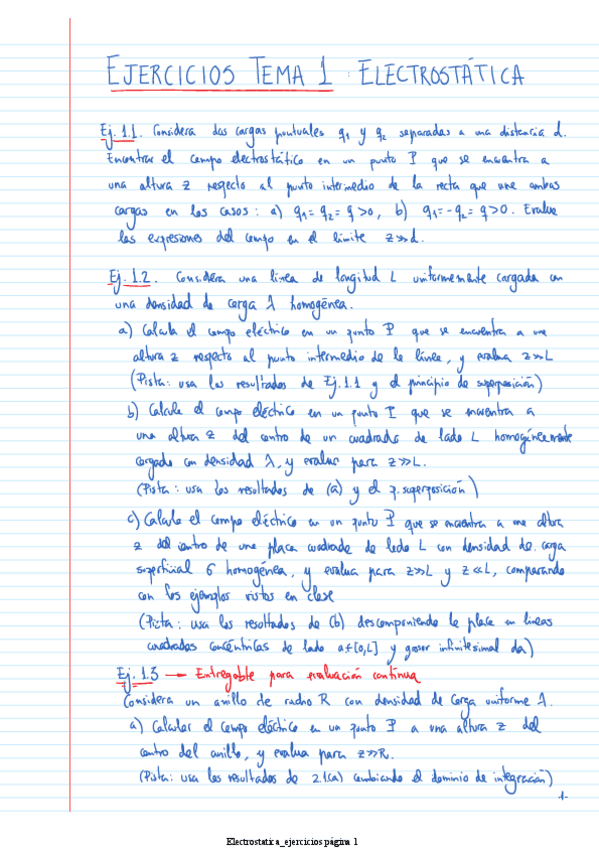 EJERCICIOS TEMA 1 : ELECTROSTÁTICA
Ej. 1.1. Considera dos cargas puntuales q₁ y q₂ separadas a una distancia d.
Encontrar el campo electrostático en un punto P que se encuentra a
una altura z respecto al punto intermedio de la recta que une ambas
cargas en los casos: a) q₁ = q₂ = q > 0, b) q₁ = -q₂ = q > 0. Evalue
las expresiones del campo en el límite z ≫ d.
Ej. 1.2. Considera una línea de longitud L uniformemente cargada con
una densidad de carga λ homogénea.
a) Calcula el campo eléctrico en un punto P que se encuentra a una
altura z respecto al punto intermedio de la línea, y evalua z ≫ L
(Pista: usa los resultados de Ej. 1.1 y el principio de superposición)
b) Calcula el campo eléctrico en un punto P que se encuentra a
una altura z del centro de un cuadrado de lado L homogéneamente
cargado con densidad λ, y evaluar para z ≫ L.
(Pista: usa los resultados de (a) y el p. superposición)
c) Calcula el campo eléctrico en un punto P que se encuentra a una altura
z del centro de una placa cuadrada de lado L con densidad de carga
superficial σ homogénea, y evalua para z ≫ L y z ≪ L, comparando
con los ejemplos vistos en clase
(Pista: usa los resultados de (b) descomponiendo la placa en líneas
cuadradas concéntricas de lado a∈[0,L] y grosor infinitesimal da)
Ej. 1.3 → Entregable para evaluación continua
Considera un anillo de radio R con densidad de carga uniforme λ.
a) Calcular el campo eléctrico en un punto P a una altura z del
centro del anillo, y evalua para z ≫ R.
(Pista: usa los resultados de 2.1(a) cambiando el dominio de integración)
1-
Electrostatica_ejercicios página 1